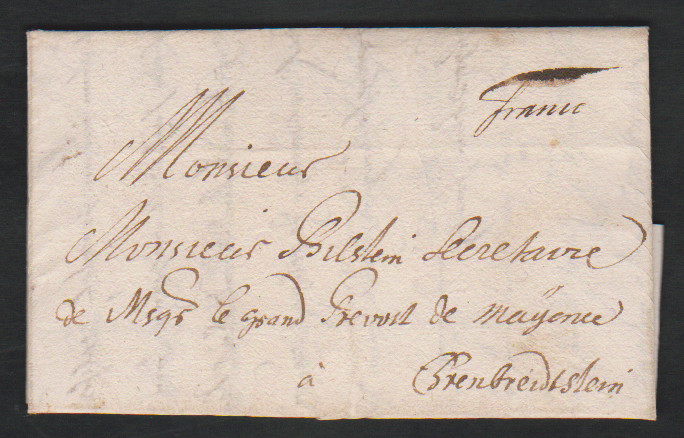 franco
Monsieur
Monsieur Bilstein Secretaire
de Msgr le grand Prevost de Maÿence
à Ehrenbreidtstein